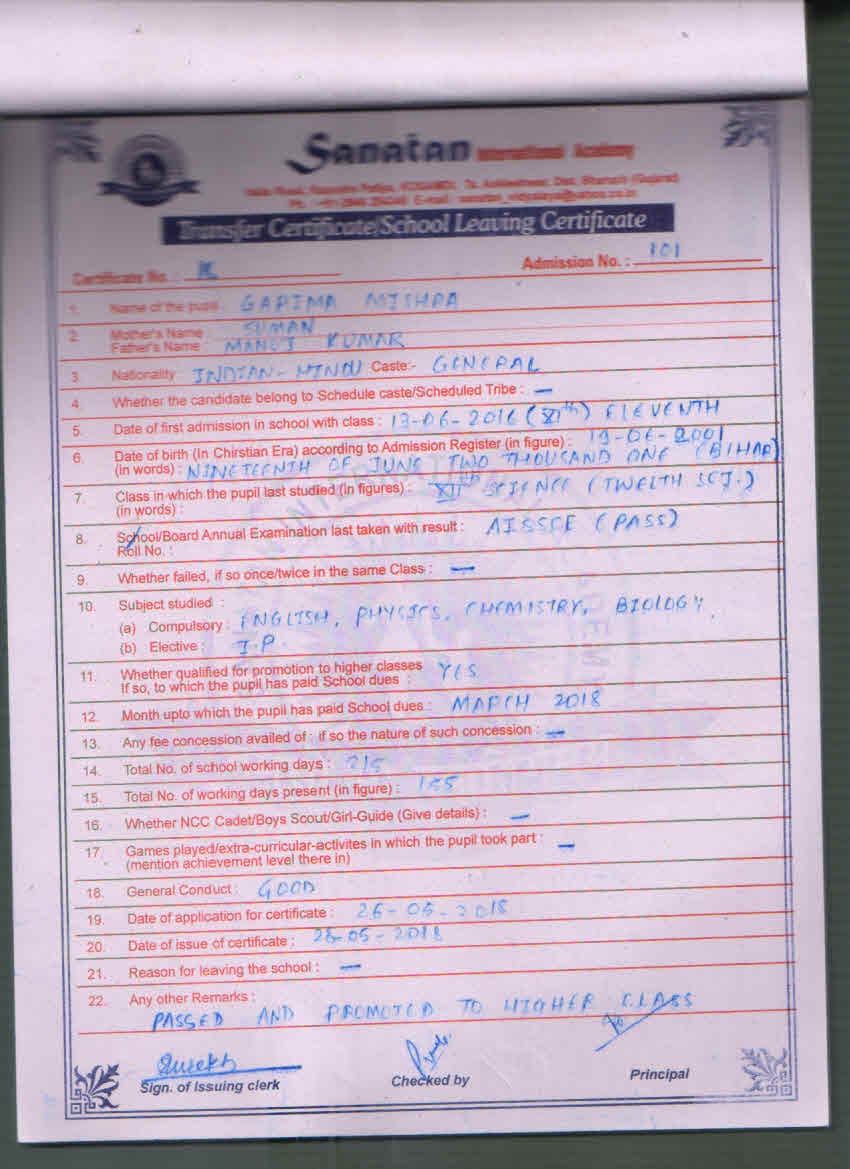 Sanatan International Academy
Transfer Certificate/School Leaving Certificate
Certificate No. :
Admission No. : 101
1. Name of the pupil GARIMA MISHRA
2. Mother's Name SUMAN
Father's Name MANOJ KUMAR
3. Nationality INDIAN-HINDU Caste:- GENERAL
4. Whether the candidate belong to Schedule caste/Scheduled Tribe : —
5. Date of first admission in school with class : 13-06-2016 (XIth) ELEVENTH
6. Date of birth (In Chirstian Era) according to Admission Register (in figure) : 19-06-2001
(in words) : NINETEENTH OF JUNE TWO THOUSAND ONE (BIHAR)
7. Class in which the pupil last studied (in figures) : XIIth SCIENCE (TWELTH SCI.)
(in words) :
8. School/Board Annual Examination last taken with result : AISSCE (PASS)
Roll No. :
9. Whether failed, if so once/twice in the same Class : —
10. Subject studied :
(a) Compulsory : ENGLISH, PHYSICS, CHEMISTRY, BIOLOGY,
(b) Elective : I.P.
11. Whether qualified for promotion to higher classes YES
If so, to which the pupil has paid School dues :
12. Month upto which the pupil has paid School dues : MARCH 2018
13. Any fee concession availed of : if so the nature of such concession : —
14. Total No. of school working days : 215
15. Total No. of working days present (in figure) : 155
16. Whether NCC Cadet/Boys Scout/Girl-Guide (Give details) : —
17. Games played/extra-curricular-activites in which the pupil took part : —
(mention achievement level there in)
18. General Conduct : GOOD
19. Date of application for certificate : 26-05-2018
20. Date of issue of certificate : 28-05-2018
21. Reason for leaving the school : —
22. Any other Remarks :
PASSED AND PROMOTED TO HIGHER CLASS
Sign. of Issuing clerk
Checked by
Principal